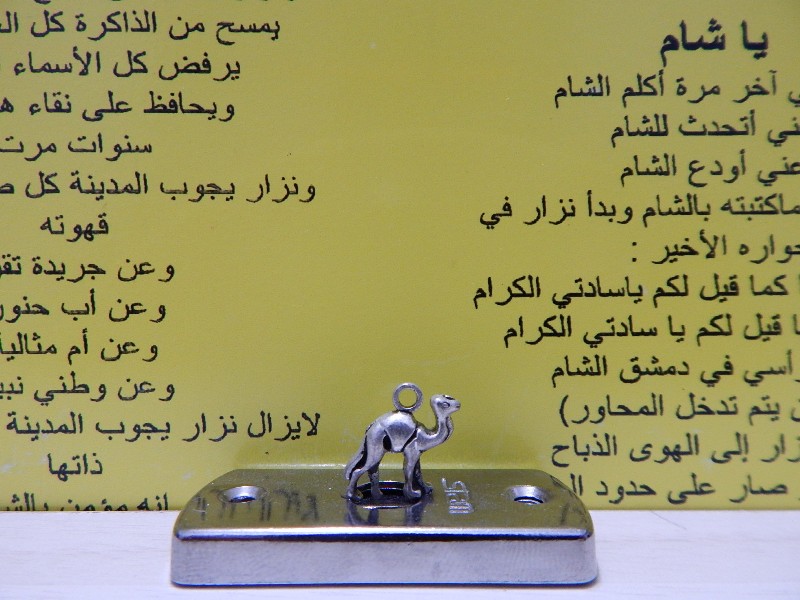 يا شام
آخر مرة أكلم الشام
أتحدث للشام
أودع الشام
بالشام وبدأ نزار في
الأخير :
كما قيل لكم ياسادتي الكرام
قيل لكم يا سادتي الكرام
في دمشق الشام
يتم تدخل المحاور)
إلى الهوى الذباح
صار على حدود
يمسح من الذاكرة كل
يرفض كل الأسماء
ويحافظ على نقاء
سنوات مرت
ونزار يجوب المدينة كل
قهوته
وعن جريدة
وعن أب
وعن أم
وعن وطني
لايزال نزار يجوب المدينة
ذاتها